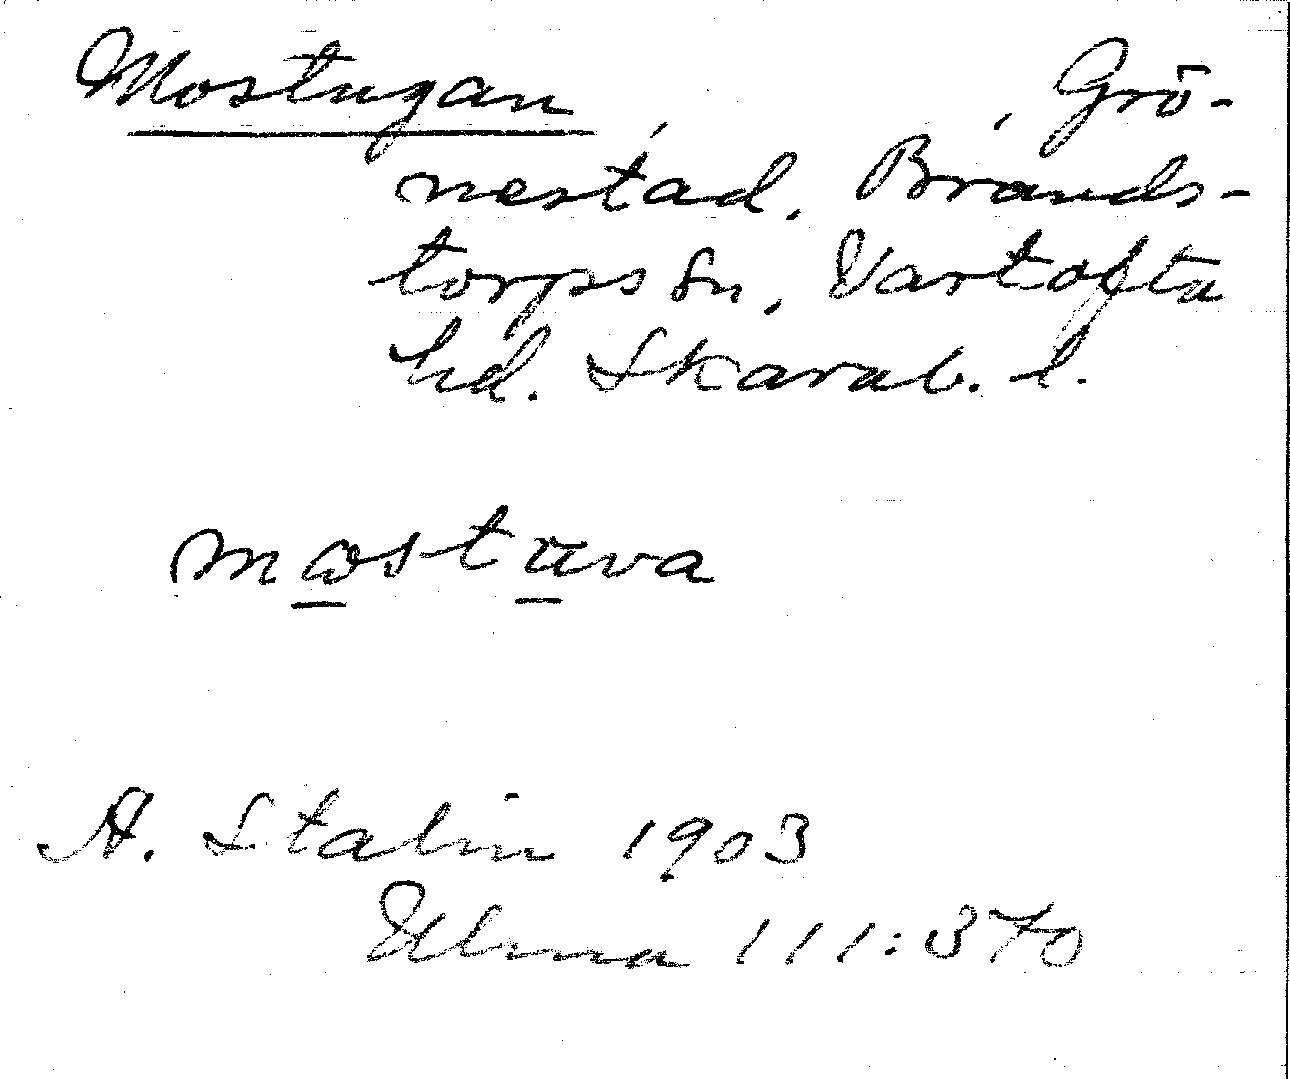 Mostugan, Grö-
nestad. Brands-
torps sn, Vartofta
hd. Skarab. l.
mostuva
A. Stalin 1903
Ulma 111:370